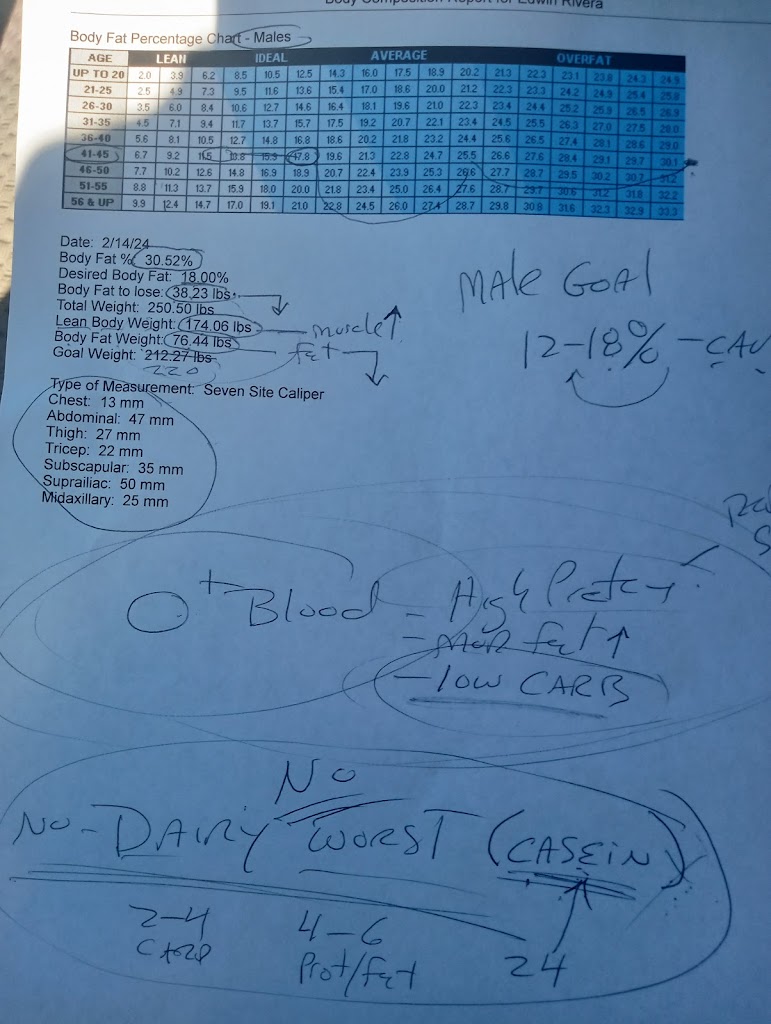 Body Composition Report for Edwin Rivera
Body Fat Percentage Chart - Males
AGE LEAN IDEAL AVERAGE OVERFAT
UP TO 20 2.0 3.9 6.2 8.5 10.5 12.5 14.3 16.0 17.5 18.9 20.2 21.3 22.3 23.1 23.8 24.3 24.9
21-25 2.5 4.9 7.3 9.5 11.6 13.6 15.4 17.0 18.6 20.0 21.2 22.3 23.3 24.2 24.9 25.4 25.8
26-30 3.5 6.0 8.4 10.6 12.7 14.6 16.4 18.1 19.6 21.0 22.3 23.4 24.4 25.2 25.9 26.5 26.9
31-35 4.5 7.1 9.4 11.7 13.7 15.7 17.5 19.2 20.7 22.1 23.4 24.5 25.5 26.3 27.0 27.5 28.0
36-40 5.6 8.1 10.5 12.7 14.8 16.8 18.6 20.2 21.8 23.2 24.4 25.6 26.5 27.4 28.1 28.6 29.0
41-45 6.7 9.2 11.5 13.8 15.9 17.8 19.6 21.3 22.8 24.7 25.5 26.6 27.6 28.4 29.1 29.7 30.1
46-50 7.7 10.2 12.6 14.8 16.9 18.9 20.7 22.4 23.9 25.3 26.6 27.7 28.7 29.5 30.2 30.7 31.2
51-55 8.8 11.3 13.7 15.9 18.0 20.0 21.8 23.4 25.0 26.4 27.6 28.7 29.7 30.6 31.2 31.8 32.2
56 & UP 9.9 12.4 14.7 17.0 19.1 21.0 22.8 24.5 26.0 27.4 28.7 29.8 30.8 31.6 32.3 32.9 33.3
Date: 2/14/24
Body Fat % 30.52%
Desired Body Fat: 18.00%
Body Fat to lose: 38.23 lbs.
Total Weight: 250.50 lbs
Lean Body Weight: 174.06 lbs muscle ↑
Body Fat Weight: 76.44 lbs fat
Goal Weight: 212.27 lbs
220
MALE GOAL
12-18% - CAU
Type of Measurement: Seven Site Caliper
Chest: 13 mm
Abdominal: 47 mm
Thigh: 27 mm
Tricep: 22 mm
Subscapular: 35 mm
Suprailiac: 50 mm
Midaxillary: 25 mm
O+ Blood - High
- fat ↑
- LOW CARB
NO
NO-DAIRY WORST (CASEIN)
2-4 4-6 24
CARB Prot/Fat